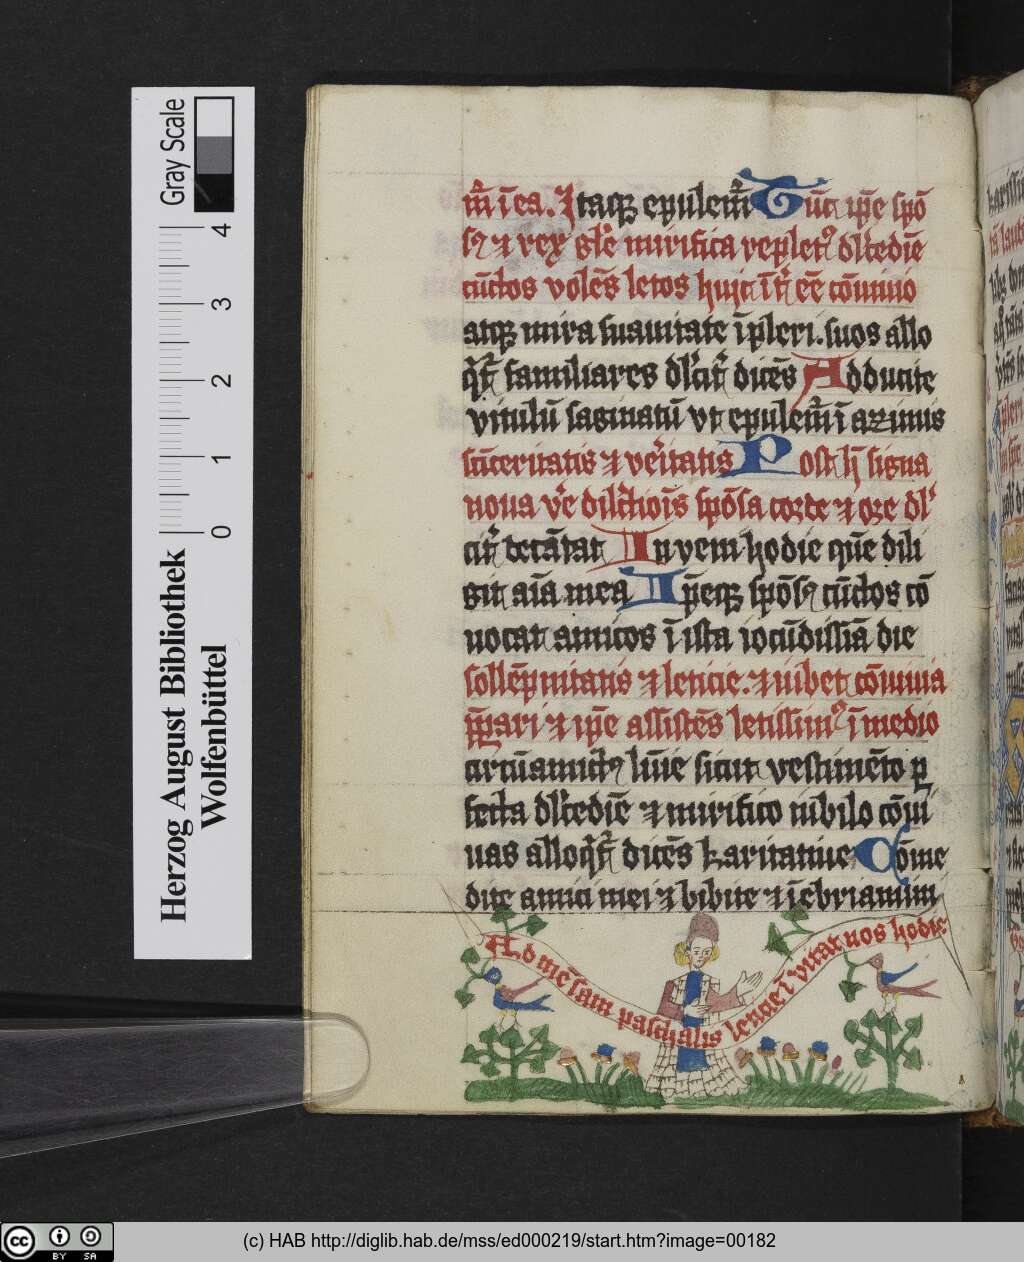 Gray Scale
4
3
2
1
0
Herzog August Bibliothek
Wolfenbüttel
m̄ ī ea. Itaqꝫ epulem̄ Tūc ip̄e spō
sꝰ ⁊ rex gl̄e mirifica repletꝰ dl̄cedīe
cūctos volēs letos huic īt̄ eē cōuiuio
atqꝫ mira suauitate īpleri. suos allo
familiares dicēs Adducite
vitulū saginatū vt epulem̄ ī azimis
sinceritatis ⁊ veritatis Post h̄ signa
noua v̄e dilc̄iōis spōsa corde ⁊ ore dl̄
cit̄ decātat In veni hodie quē dili
git aīa mea Ip̄eqꝫ spōsꝰ cūctos cō
uocat amicos ī ista iocūdissīa die
sollēpnitatis ⁊ leticie. ⁊ iubet cōuiuia
p̄pari ⁊ ip̄e assistēs letissimꝰ ī medio
circūamictꝰ lūīe sicut vestimēto ꝑ
fecta dl̄cedīe ⁊ mirifico iubilo cōui
uas alloq̄t̄ dicēs karitatiue Cōme
dite amici mei ⁊ bibite ⁊ īebriamini
Ad mēsam paschalis leticie ī vitat uos hodie
(c) HAB http://diglib.hab.de/mss/ed000219/start.htm?image=00182
cc BY SA